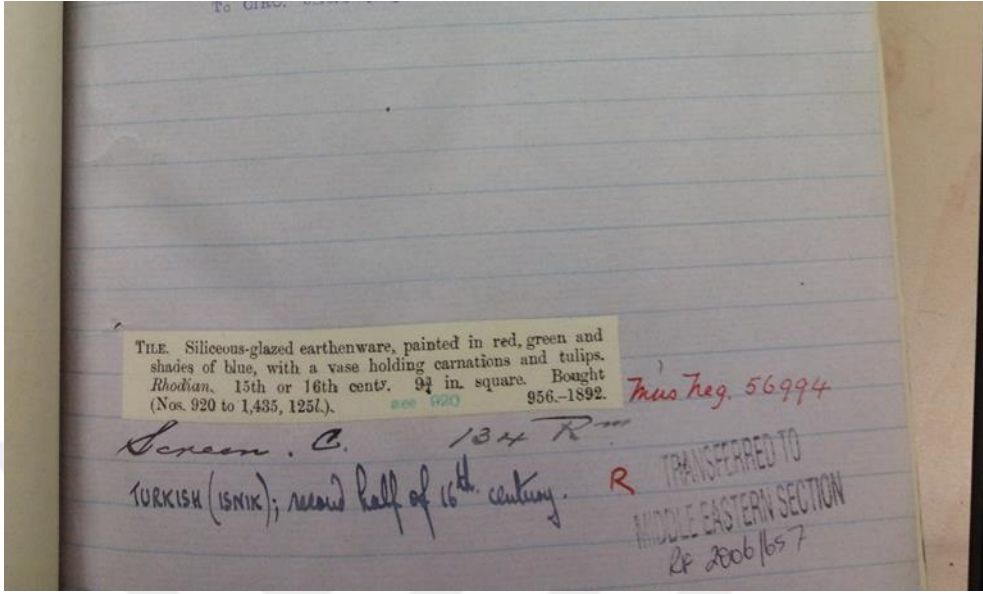 To CIRC.
TILE. Siliceous-glazed earthenware, painted in red, green and
shades of blue, with a vase holding carnations and tulips.
Rhodian. 15th or 16th centy. 9¾ in. square. Bought
(Nos. 920 to 1,435, 125l.). see 920 956.–1892.
Mus Neg. 56994
Screen . C. 134 Rm
TURKISH (ISNIK); second half of 16th century.
R
TRANSFERRED TO
MIDDLE EASTERN SECTION
RF 2006/657